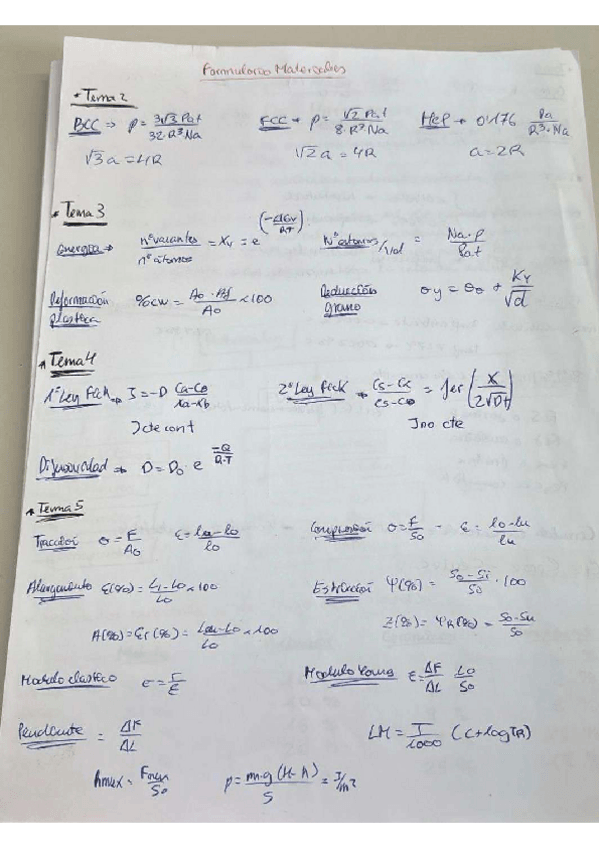 Formulario Materiales
* Tema 2
BCC ⇒ p = 3√3 Pat / 32·R³Na
FCC → p = √2 Pat / 8·R³·Na
HCP → 0'176 Pa / R³·Na
√3 a = 4R
√2 a = 4R
a = 2R
* Tema 3
energia → nº vacantes / nº átomos = Xv = e^(-ΔGv / R·T)
Nº átomos/Vol = Na·p / Pat
Deformación plastica %CW = / A0 × 100
Reducción grano σy = σ0 + Ky / √d
* Tema 4
1º Ley Fick → J = -D Ca-Cb / Xa-Xb
2º Ley Fick → Cs-Cx / Cs-C0 = fer (X / 2√Dt)
J cte cont
J no cte
Difusividad → D = D0 · e^(-Q / R·T)
* Tema 5
Tracción σ = F / A0 ε = / l0
Compresión σ = F / S0 - ε = l0-lu / lu
Alargamiento ε(%) = Li-L0 / L0 × 100
Estricción Ψ(%) = S0-Si / S0 · 100
A(%) = εr(%) = / L0 × 100
Z(%) = ΨR(%) = S0-Su / S0
Modulo elastico
Modulo Young ε = ΔF / ΔL L0 / S0
Pendiente = ΔF / ΔL
LM = T / 1000 (C + log TR)
p = m·g (H-h) / S = J/m²